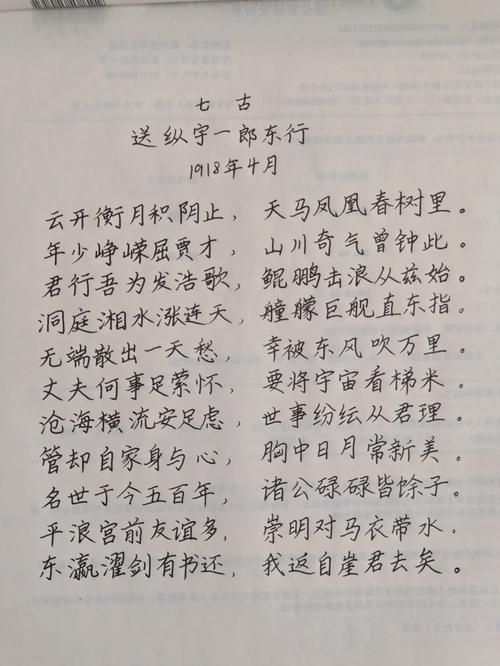 七 古
送纵宇一郎东行
1918年4月
云开衡月积阴止，天马凤凰春树里。
年少峥嵘屈贾才，山川奇气曾钟此。
君行吾为发浩歌，鲲鹏击浪从兹始。
洞庭湘水涨连天，艟艨巨舰直东指。
无端散出一天愁，幸被东风吹万里。
丈夫何事足萦怀，要将宇宙看梯米。
沧海横流安足虑，世事纷纭从君理。
管却自家身与心，胸中日月常新美。
名世于今五百年，诸公碌碌皆馀子。
平浪宫前友谊多，崇明对马衣带水。
东瀛濯剑有书还，我返自崖君去矣。